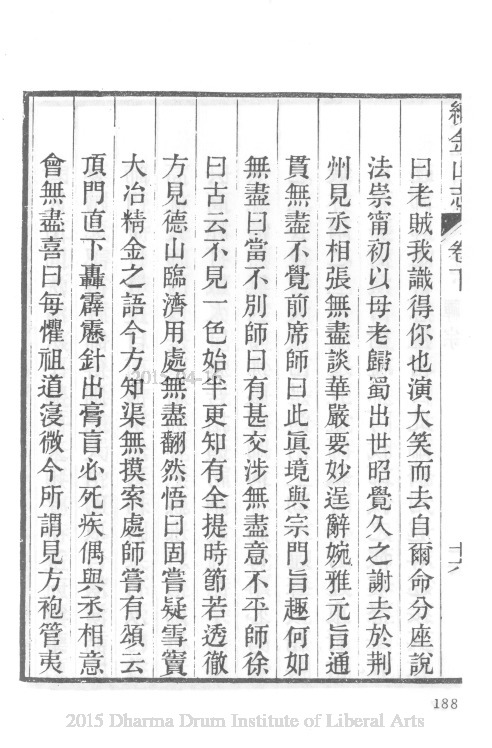 續金山志 卷下 十六
曰老賊我識得你也演大笑而去自爾命分座說
法崇甯初以母老歸蜀出世昭覺久之謝去於荆
州見丞相張無盡談華嚴要妙逞辭婉雅元旨通
貫無盡不覺前席師曰此眞境與宗門旨趣何如
無盡曰當不別師曰有甚交涉無盡意不平師徐
曰古云不見一色始半更知有全提時節若透徹
方見德山臨濟用處無盡翻然悟曰固嘗疑雪竇
大冶精金之語今方知渠無摸索處師嘗有頌云
頂門直下轟霹靂針出膏肓必死疾偶與丞相意
會無盡喜曰每懼祖道寖微今所謂見方袍管夷
188
2015 Dharma Drum Institute of Liberal Arts